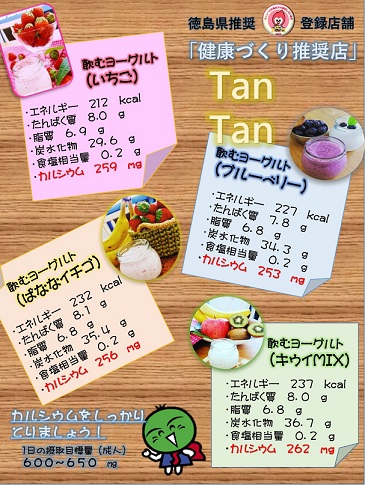 徳島県推奨 登録店舗
「健康づくり推奨店」
Tan
Tan
飲むヨーグルト
(いちご)
・エネルギー 212 kcal
・たんぱく質 8.0 g
・脂質 6.9 g
・炭水化物 29.6 g
・食塩相当量 0.2 g
・カルシウム 259 mg
飲むヨーグルト
(ブルーベリー)
・エネルギー 227 kcal
・たんぱく質 7.8 g
・脂質 6.8 g
・炭水化物 34.3 g
・食塩相当量 0.2 g
・カルシウム 253 mg
飲むヨーグルト
(ばななイチゴ)
・エネルギー 232 kcal
・たんぱく質 8.1 g
・脂質 6.8 g
・炭水化物 35.4 g
・食塩相当量 0.2 g
・カルシウム 256 mg
飲むヨーグルト
(キウイMIX)
・エネルギー 237 kcal
・たんぱく質 8.0 g
・脂質 6.8 g
・炭水化物 36.7 g
・食塩相当量 0.2 g
・カルシウム 262 mg
カルシウムをしっかり
とりましょう!
1日の摂取目標量(成人)
600~650 mg